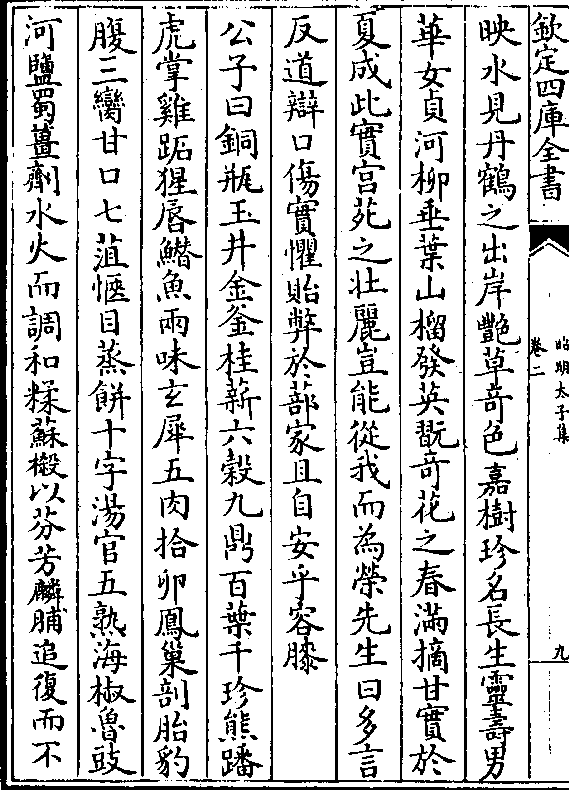 欽定四庫全書
昭明太子集
卷二
九
映水見丹鶴之出岸艷草竒色嘉樹珍名長生靈壽男
華女貞河柳垂葉山榴發英翫竒花之春滿摘甘實於
夏成此實宫苑之壯麗豈能從我而為榮先生曰多言
反道辯口傷實懼貽弊於蔀家且自安乎容膝
公子曰銅瓶玉井金釜桂薪六穀九鼎百葉千珍熊蹯
虎掌雞跖猩唇鱛魚兩味玄犀五肉拾卵鳳巢剖胎豹
腹三臠甘口七菹惬目蒸餅十字湯官五熟海椒魯豉
河鹽蜀薑劑水火而調和糅蘇樧以芬芳麟脯追復而不